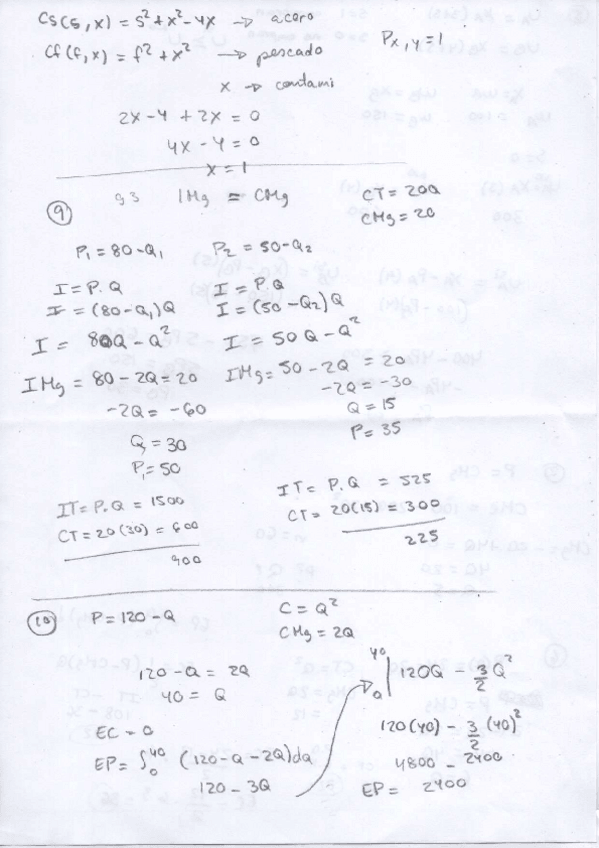 Cs(s,x) = s² + x² - 4x → acero
Cf(f,x) = f² + x² → pescado
Px,y = 1
x → contami
2x - 4 + 2x = 0
4x - 4 = 0
x = 1
93 IMg = CMg
CT = 20Q
CMg = 20
9
P₁ = 80 - Q₁ P₂ = 50 - Q₂
I = P.Q I = P.Q
I = (80 - Q₁)Q I = (50 - Q₂)Q
I = 80Q - Q² I = 50Q - Q²
IMg = 80 - 2Q = 20 IMg = 50 - 2Q = 20
-2Q = -60 -2Q = -30
Q = 30 Q = 15
P₁ = 50 P = 35
IT = P.Q = 1500 IT = P.Q = 525
CT = 20(30) = 600 CT = 20(15) = 300
900 225
10 P = 120 - Q C = Q²
CMg = 2Q
120 - Q = 2Q
40 = Q
EC = 0
EP = ∫₀⁴⁰ (120 - Q - 2Q)dQ
120 - 3Q
→ ₀⁴⁰| 120Q - 3/2 Q²
120(40) - 3/2 (40)²
4800 - 2400
EP = 2400